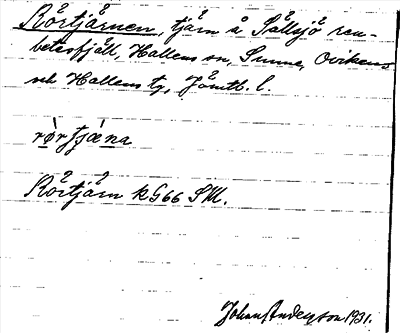 Rörtjärnen, tjärn å Sällsjö ren-
betesfjäll, Hallens sn, Sunne, Ovikens
och Hallens tg, Jämtl. l.
Rörtjärn k G66 SV.
Johan Anderson 1931.